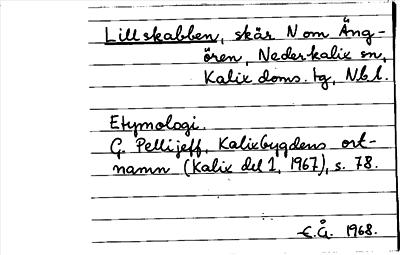 Lillskabben, skär N om Äng-
ören, Nederkalix sn,
Kalix doms. tg, Nbl.
Etymologi.
G. Pellijeff, Kalixbygdens ort-
namn (Kalix del 1, 1967), s. 78.
E.Å. 1968.